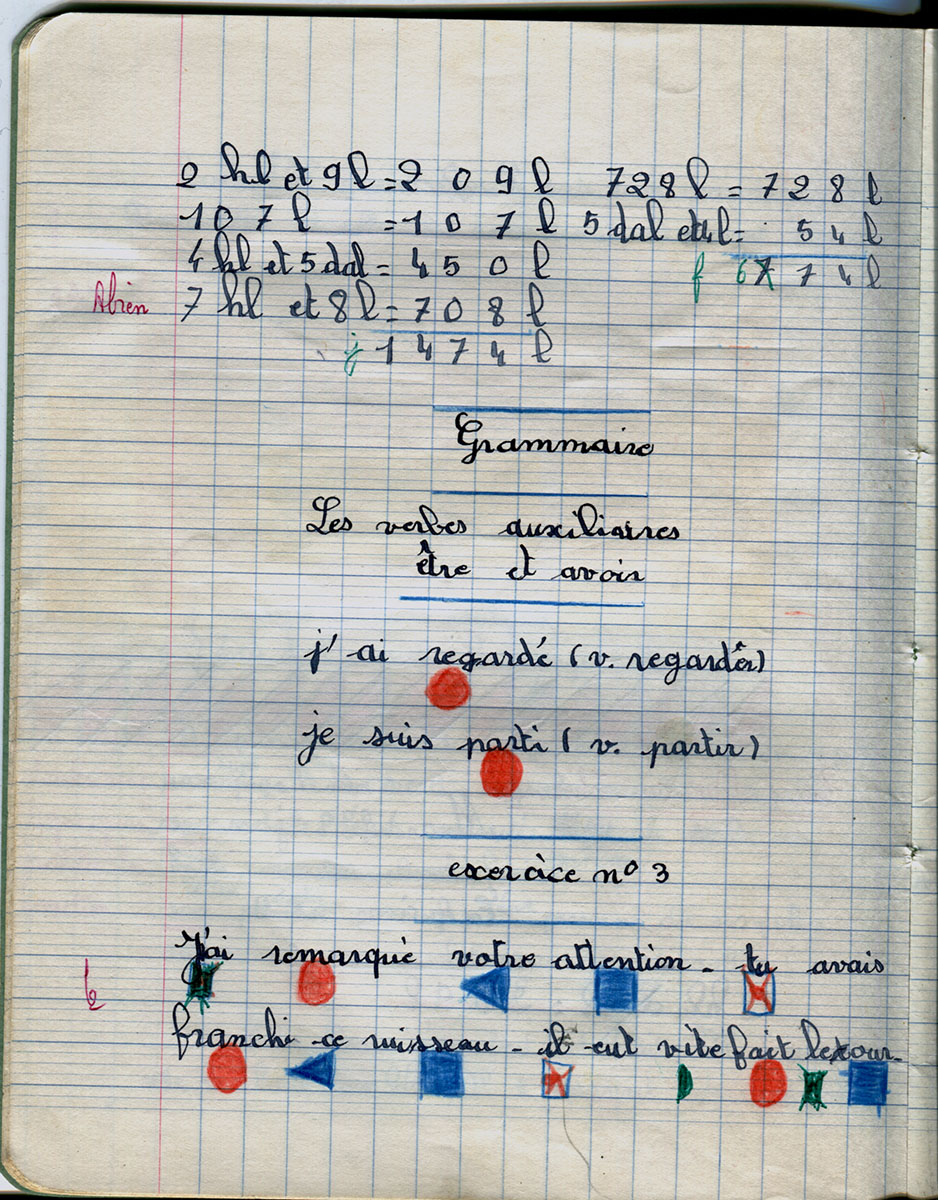 2 hl et 9 l = 2 0 9 l 728 l = 7 2 8 l
10 7 l = 1 0 7 l 5 dal et 4 l = 5 4 l
4 hl et 5 dal = 4 5 0 l 7 7 4 l
Abien 7 hl et 8 l = 7 0 8 l
j 1 4 7 4 l
Grammaire
Les verbes auxiliaires
être et avoir
j'ai regardé (v. regarder)
je suis parti (v. partir)
exercice n° 3
J'ai remarqué votre attention - tu avais
franchi ce ruisseau - il eut vite fait le tour -